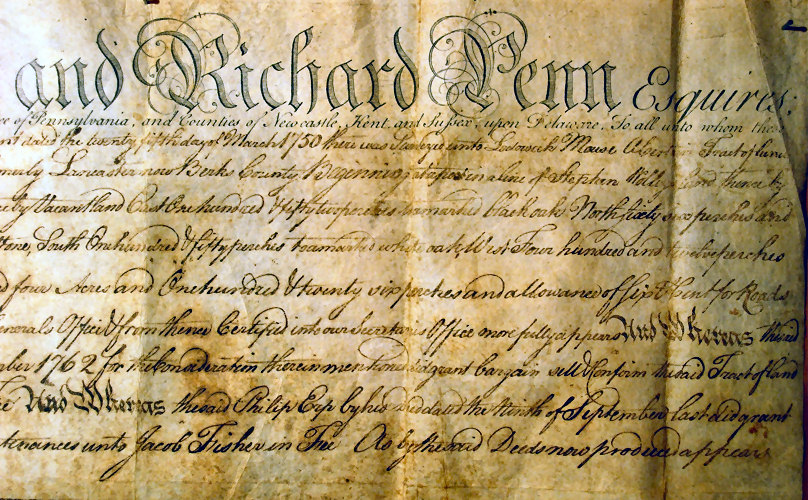 and Richard Penn Esquires,
of Pennsylvania, and Counties of Newcastle, Kent, and Sussex, upon Delaware, To all unto whom these
dated the twenty fifth day of March 1750 there was Surveyed unto Ludowick Mouse a Certain Tract of Land
Lancaster now Berks County Beginning at a post in a line of Stephen land thence by
Vacant land East One hundred & fifty two perches to a marked black oak North sixty six perches and
South One hundred & fifty perches to a marked white oak, West Four hundred and twelve perches
four Acres and One hundred & twenty six perches and allowance of six P Cent for Roads
Generals Office & from thence Certified into our Secretarys Office more fully appears And Whereas the said
1762 for the Consideration therein mentioned did grant bargain sell & Confirm the said Tract of land
And Whereas the said Philip Erp by his Deed dated the Ninth of September last did grant
unto Jacob Fisher in Fee As by the said Deeds now produced appears